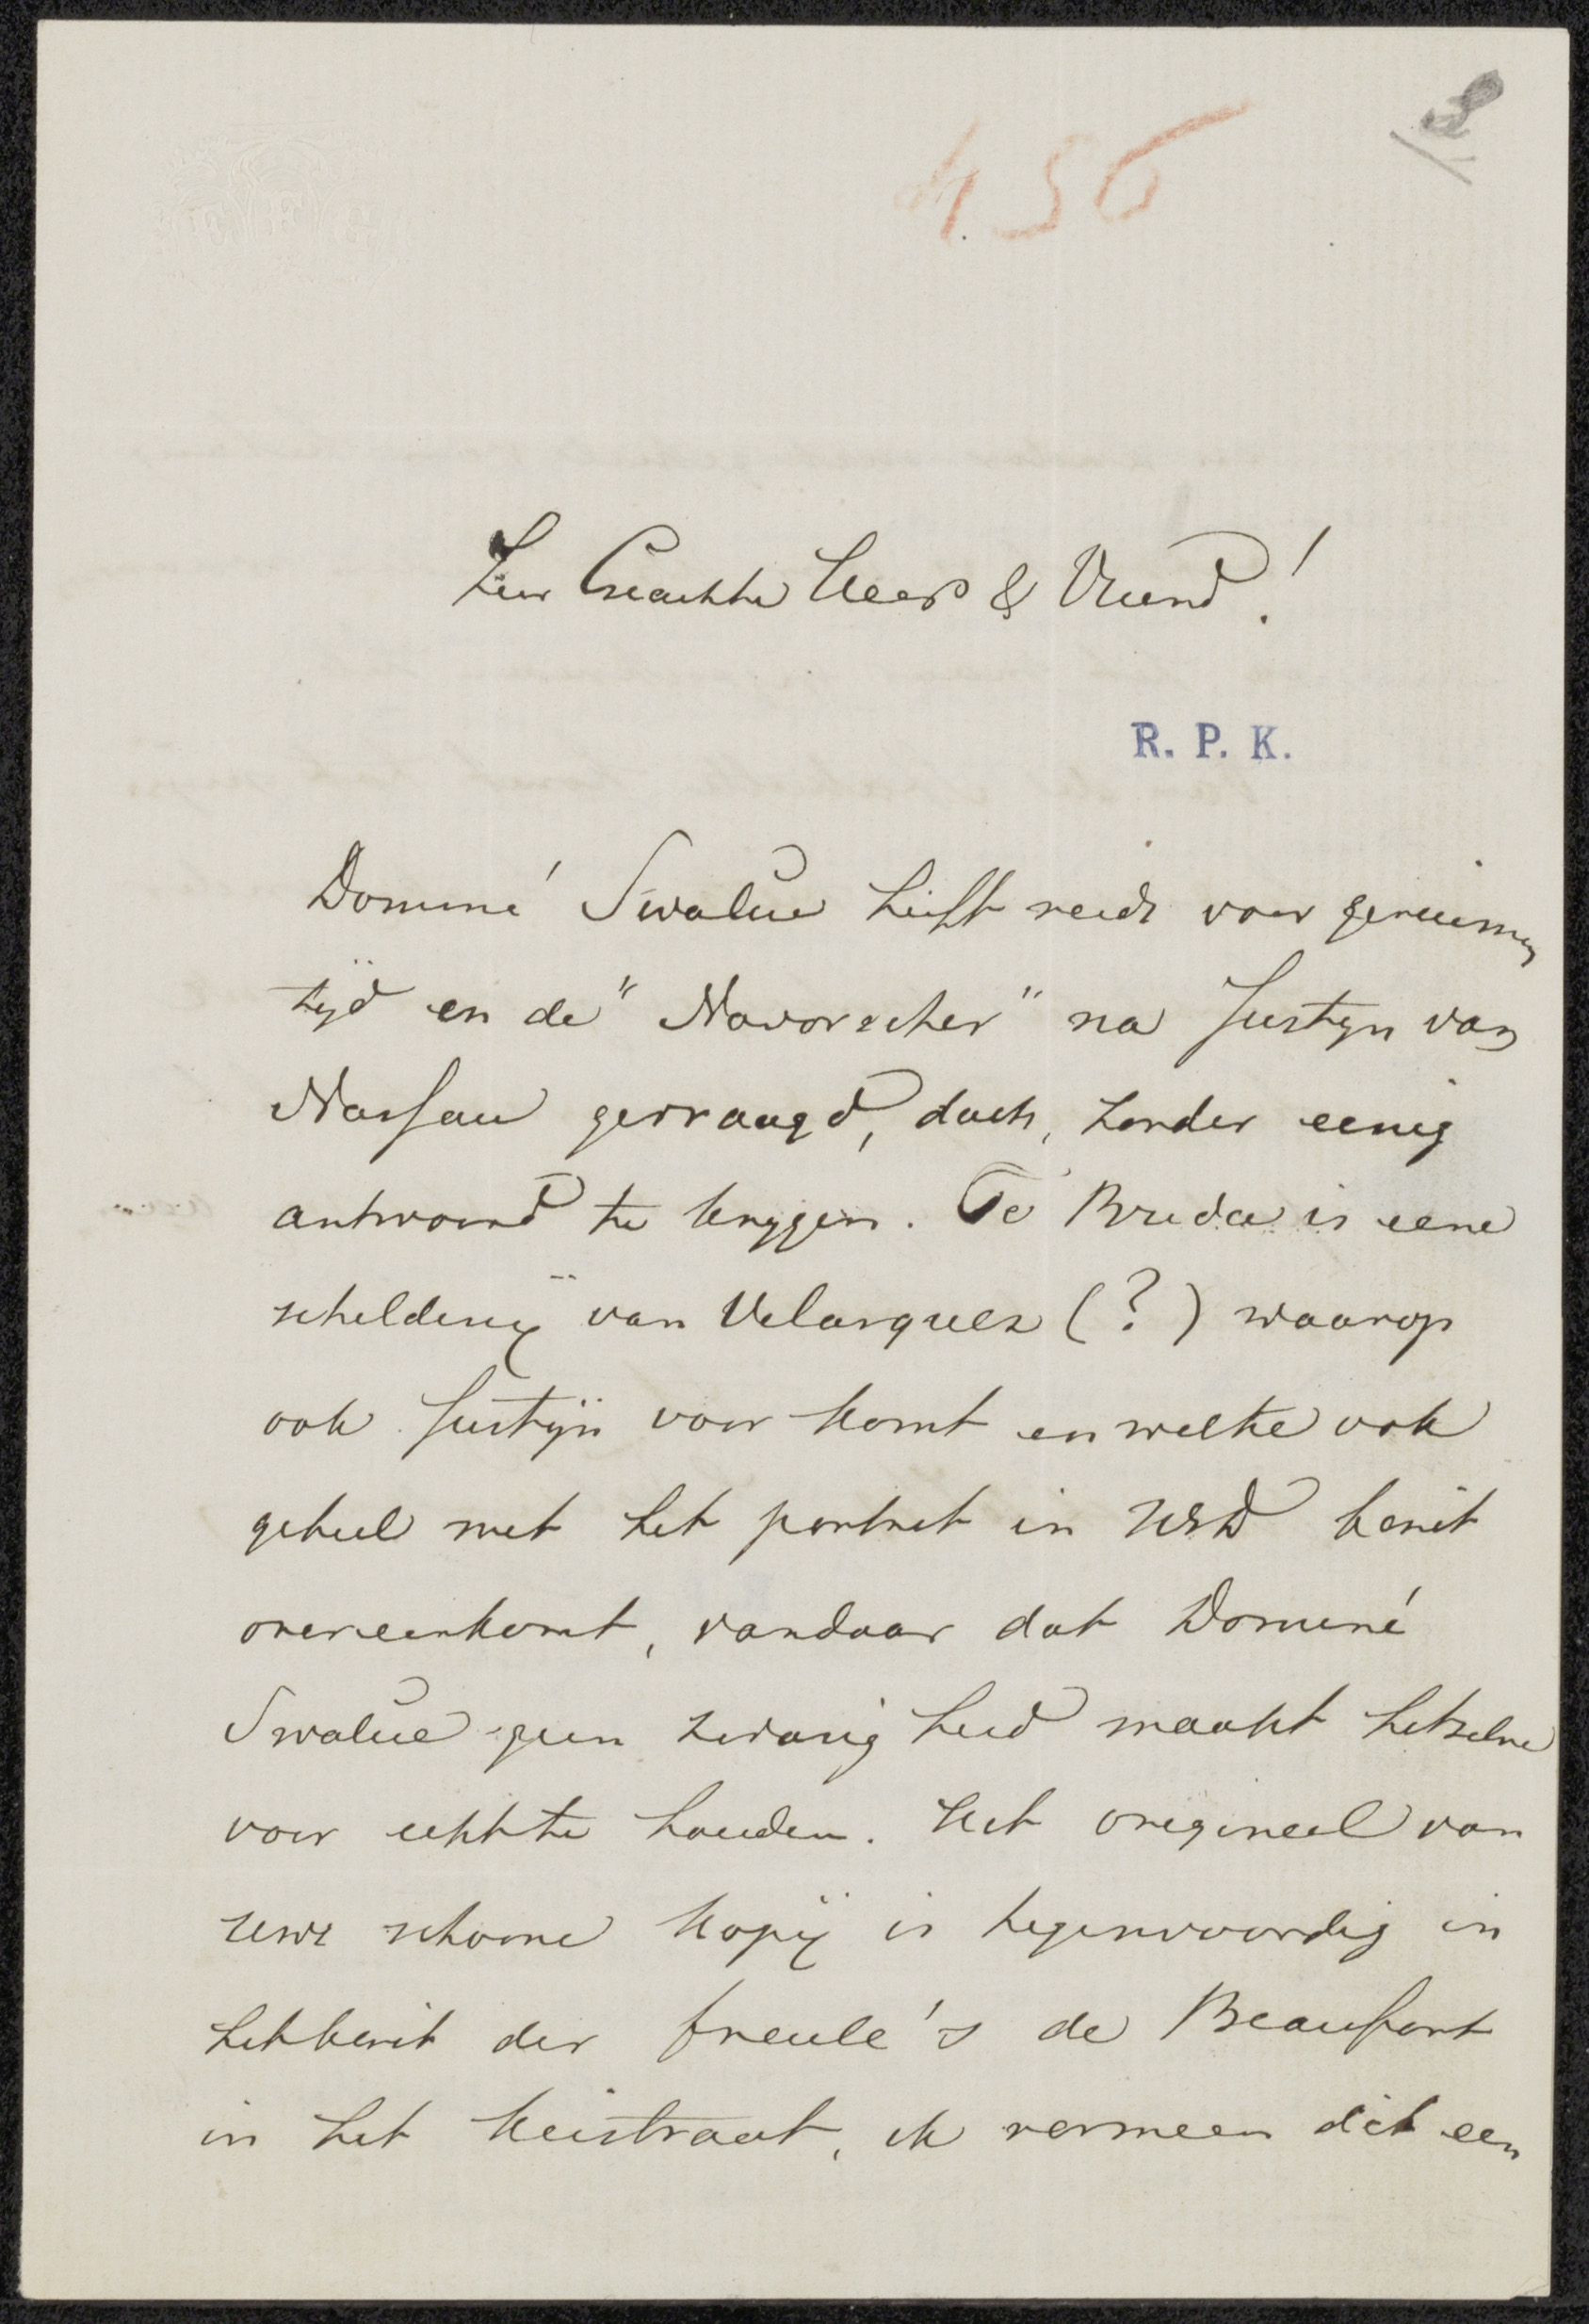 456
Zeer Geachte Heer & Vriend!
R. P. K.
Dominé Swalue heeft reeds voor geruimen
tijd en de "Navorscher" na Justijn van
Nassau gevraagd, doch, zonder eenig
antwoord te krijgen. Te Breda is eene
schilderij van Velasques (?) waarop
ook Justijn voor komt en welke ook
geheel met het portret in UEd bezit
overeenkomt, vandaar dat Dominé
Swalue geen zwarigheid maakt hetzelve
voor echt te houden. Het origineel van
uwe schoone kopij is tegenwoordig in
het bezit der freule's de Beaufort
in het Keistraat, ik vermeen dit een